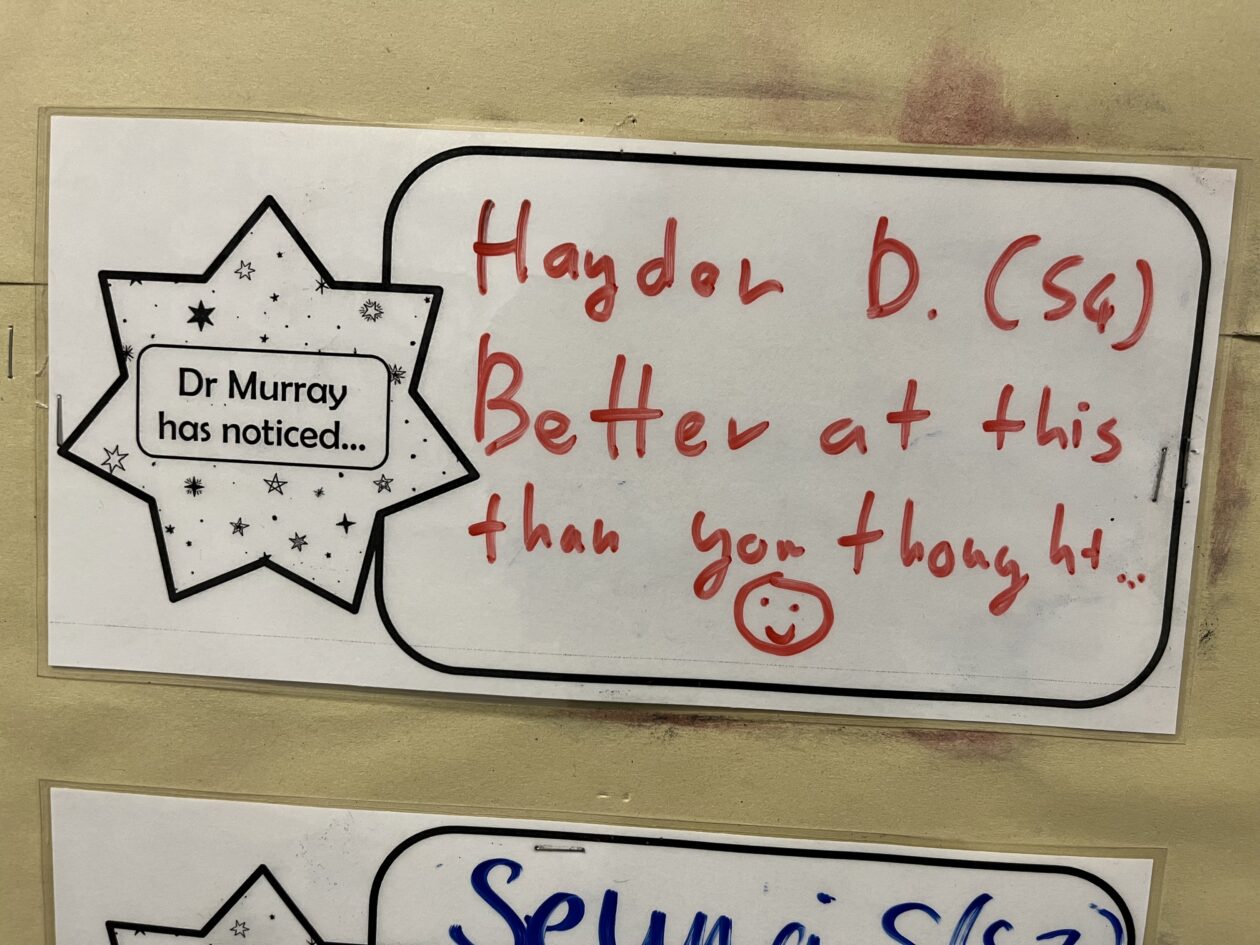 Dr Murray
has noticed...
Haydar D. (S4)
Better at this
than you thought...